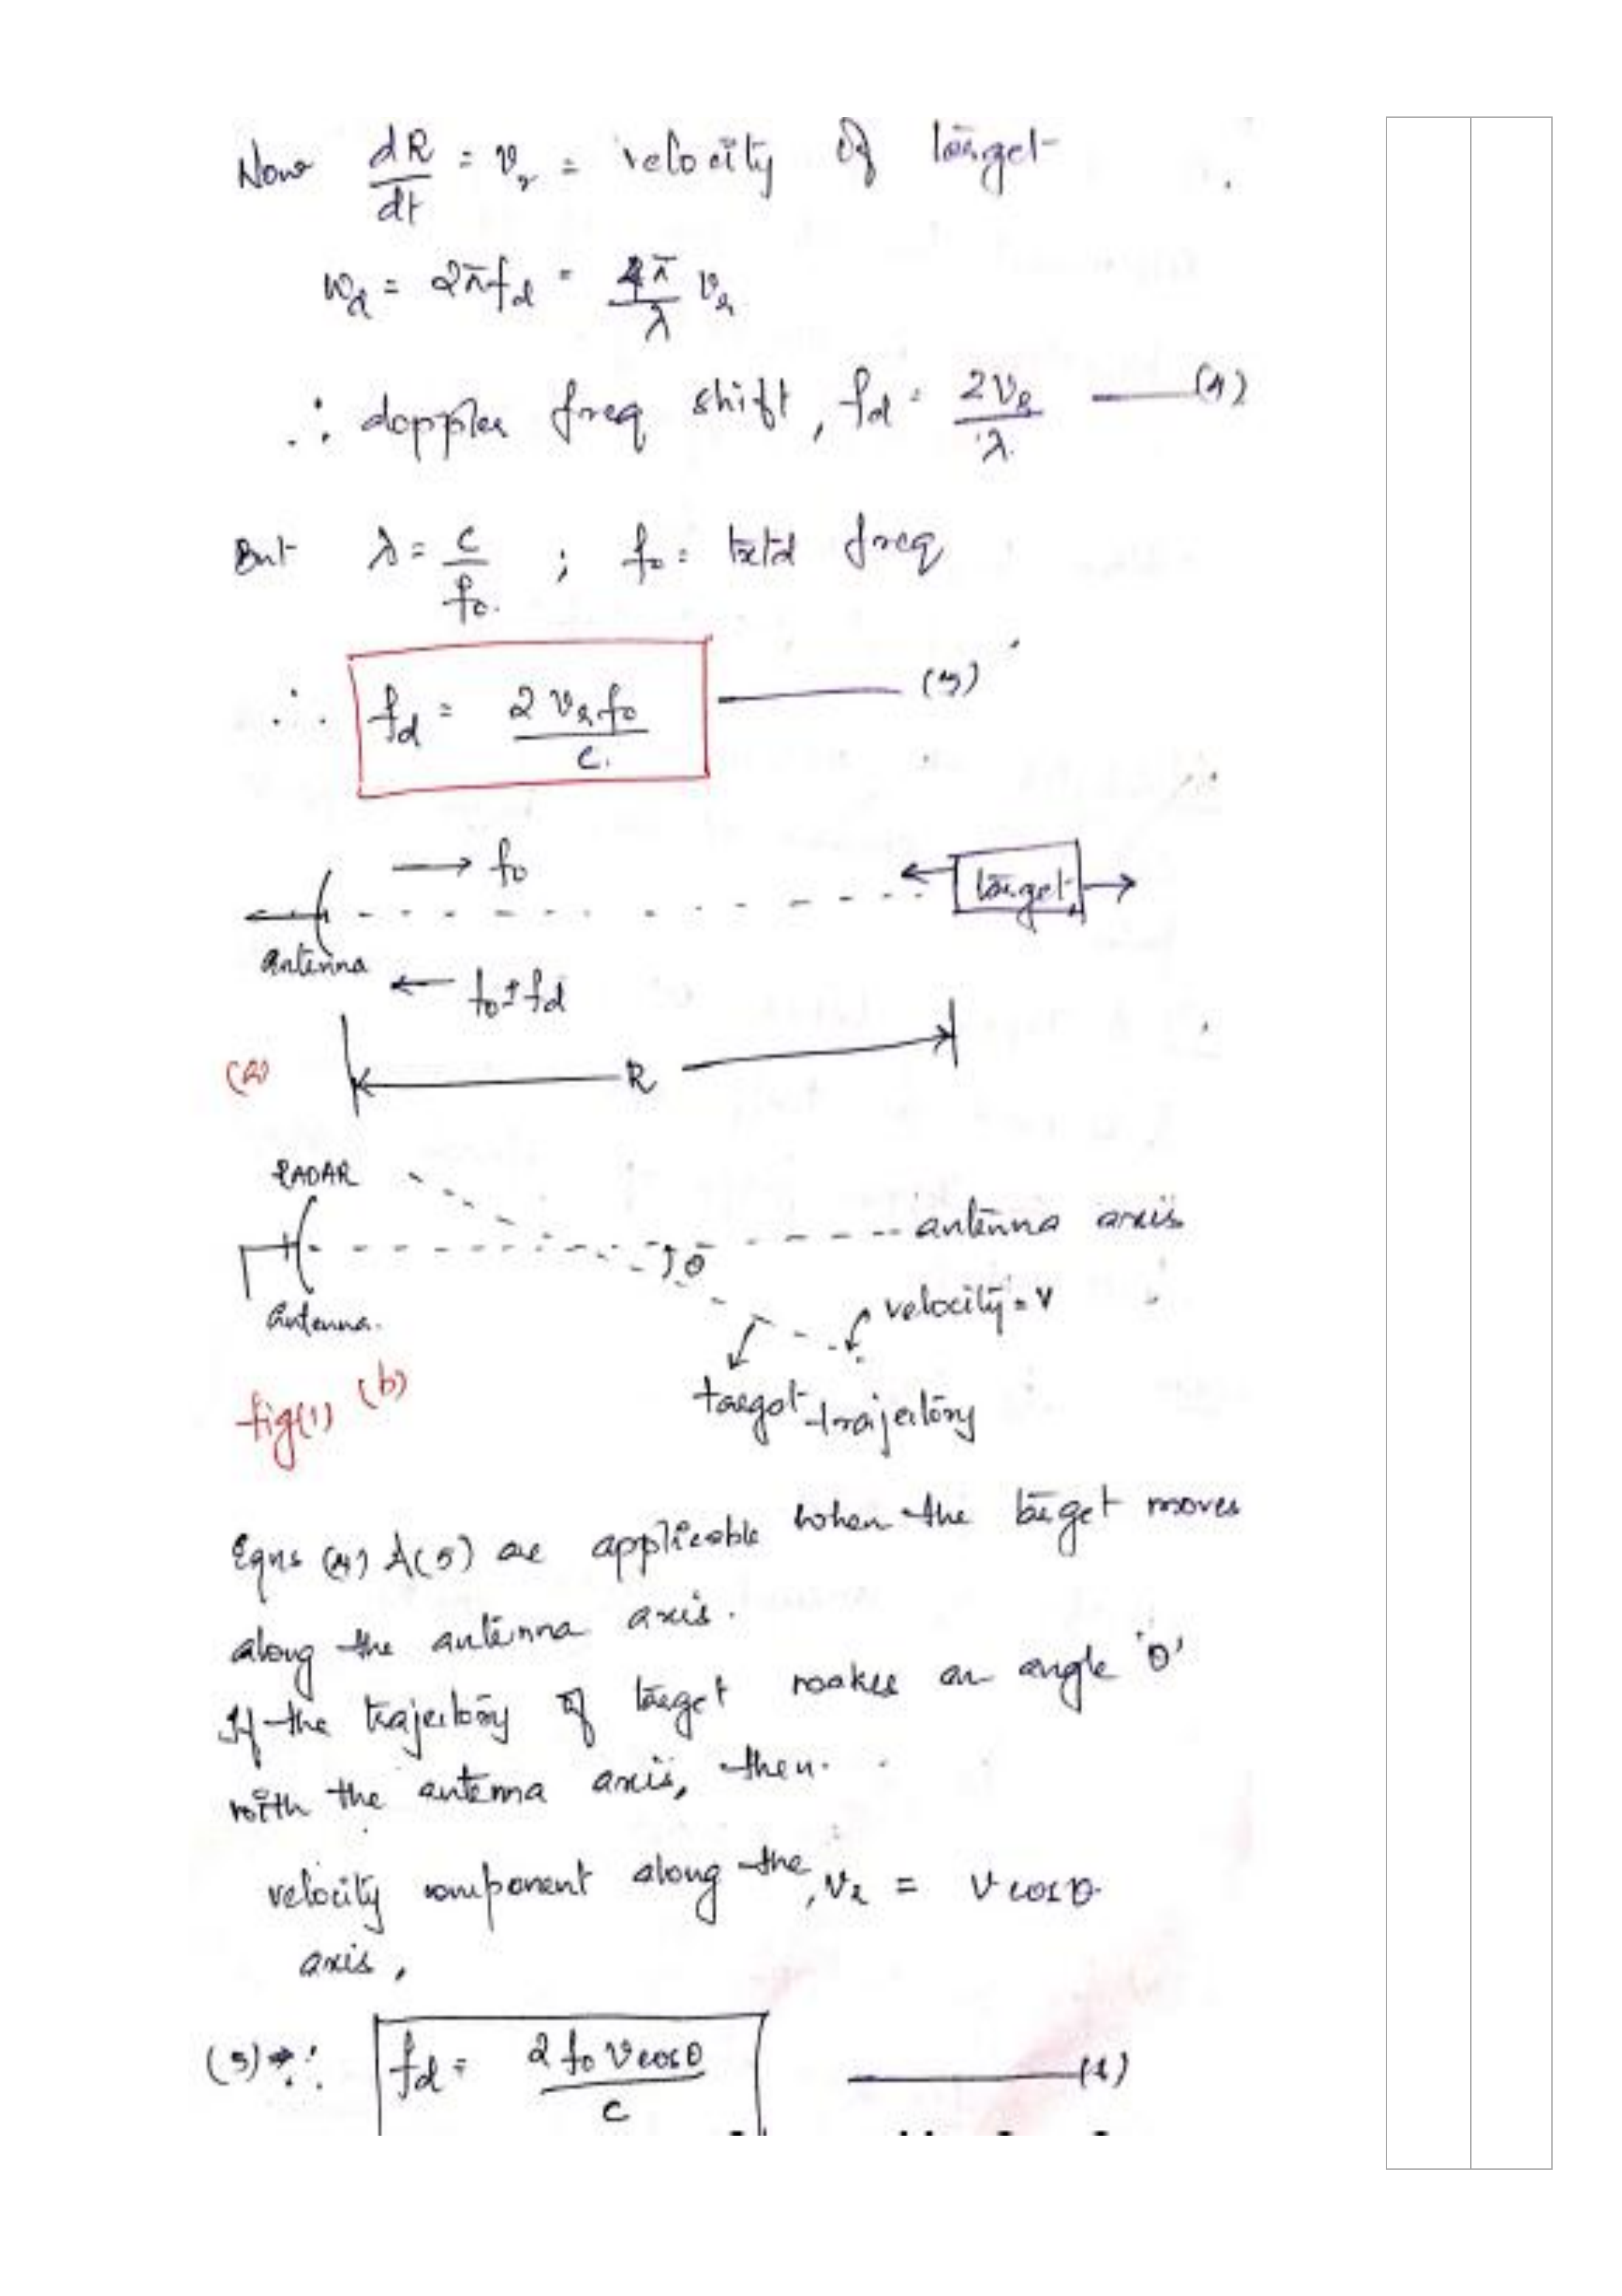 Now dR/dt = vr = velocity of target
wd = 2πfd = 4π/λ vr
∴ doppler freq shift, fd = 2vr/λ —— (4)
But λ = c/f0 ; f0 = txtd freq
∴ fd = 2 vr f0/c. —— (5)
→ f0
target
antenna
← f0±fd
(a)
R
RADAR
antenna axis
θ
velocity = v
antenna.
target trajectory
fig(1) (b)
Eqns (4) & (5) are applicable when the target moves
along the antenna axis.
If the trajectory of target makes an angle 'θ'
with the antenna axis, then.
velocity component along the, vr = v cosθ
axis,
(5) ⇒ ∴ fd = 2 f0 v cosθ/c —— (6)